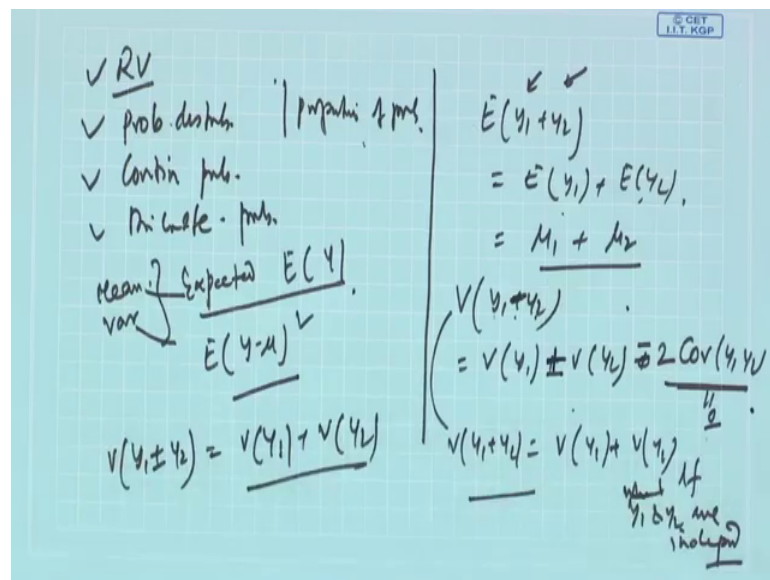 © CET
I.I.T. KGP
✓ RV
✓ Prob. distrib.
✓ Contin prob.
✓ Discrete. prob.
Mean
var
Expected E(Y).
E(y-μ)²
V(y₁±y₂) = V(y₁) + V(y₂)
E(y₁+y₂)
= E(y₁) + E(y₂).
= μ₁ + μ₂
V(y₁+y₂)
= V(y₁) ± V(y₂) ∓ 2 Cov(y₁y₂)
0
V(y₁+y₂) = V(y₁) + V(y₂)
If
y₁ & y₂ are
independ